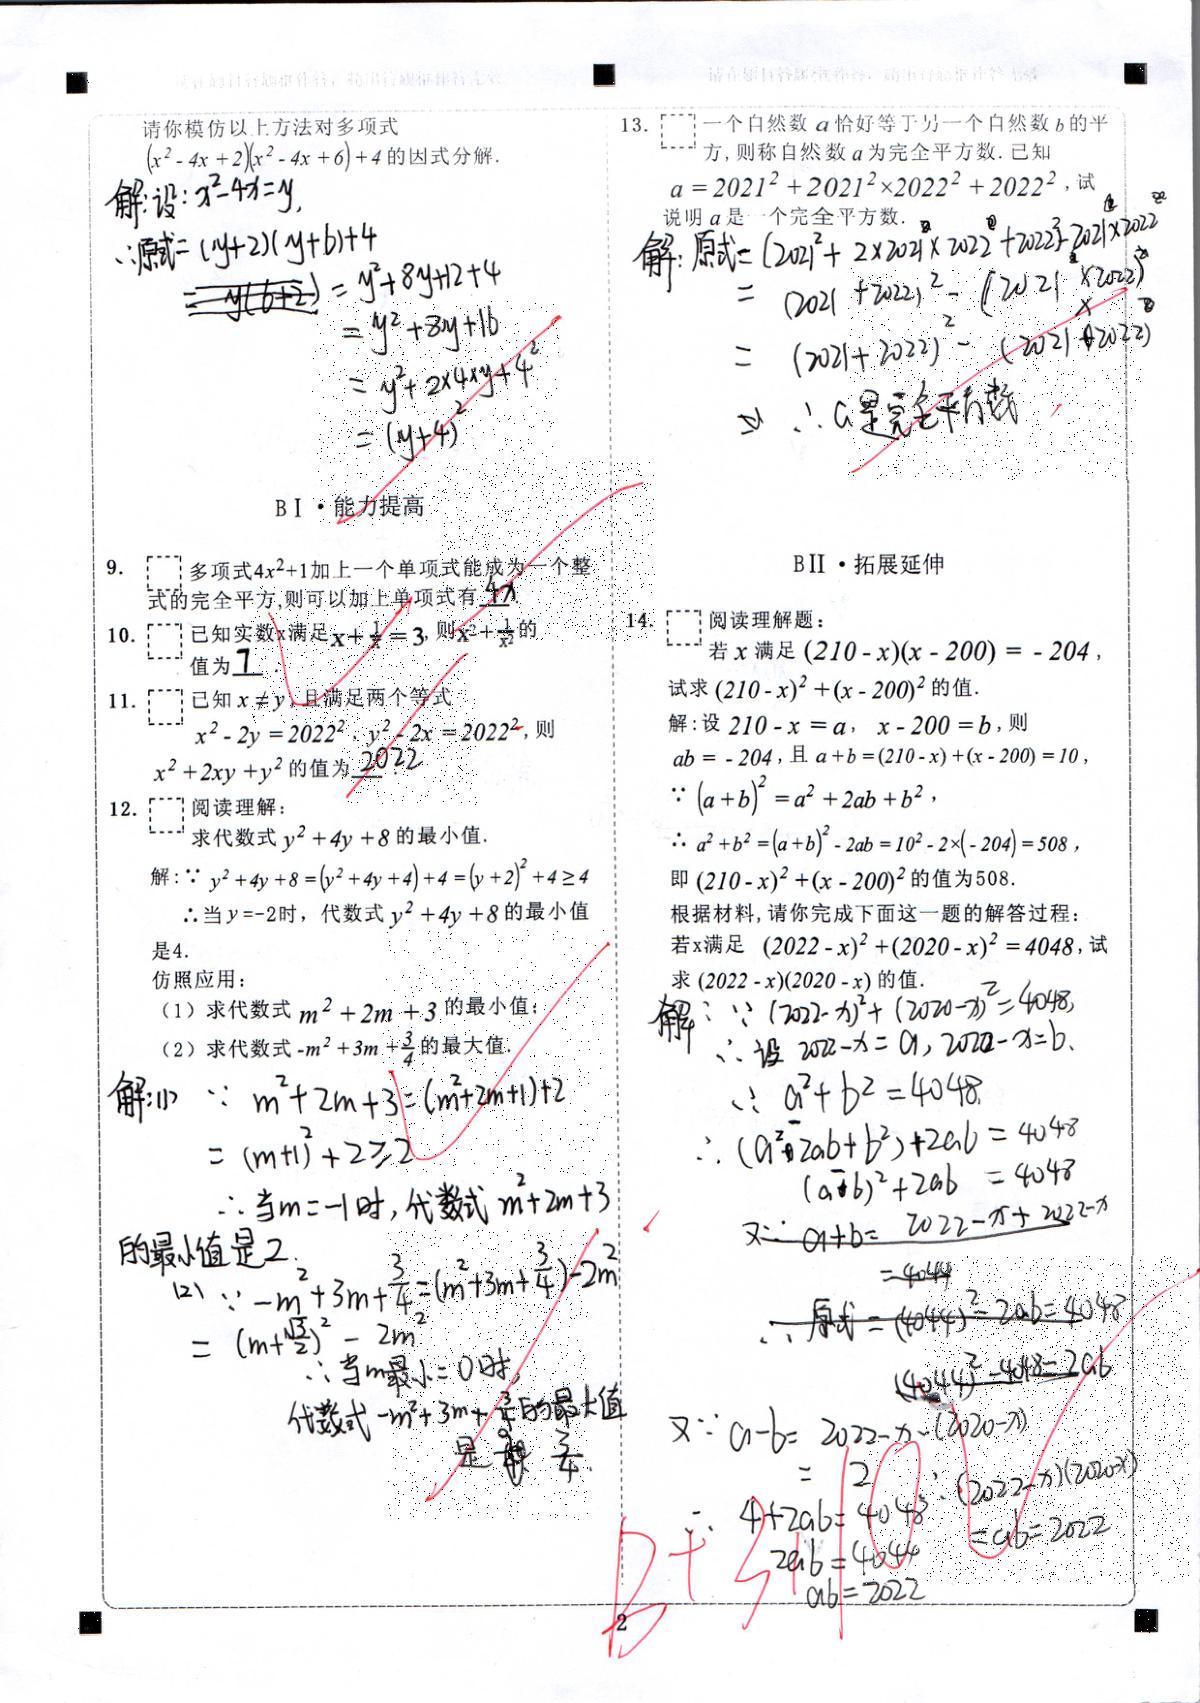 请你模仿以上方法对多项式
(x² - 4x + 2)(x² - 4x + 6) + 4 的因式分解.
解:设: x²-4x=y,
∴原式=(y+2)(y+6)+4
=y²+8y+12+4
=y²+8y+16
=y²+2×4×y+4²
=(y+4)²
BⅠ·能力提高
9. 多项式4x²+1加上一个单项式能成为一个整
式的完全平方,则可以加上单项式有 4x .
10. 已知实数x满足x+1/x=3,则x²+1/x²的
值为 7 .
11. 已知 x ≠ y, 且满足两个等式
x² - 2y = 2022², y² - 2x = 2022², 则
x² + 2xy + y² 的值为 2022 .
12. 阅读理解:
求代数式 y² + 4y + 8 的最小值.
解:∵ y² + 4y + 8 = (y² + 4y + 4) + 4 = (y + 2)² + 4 ≥ 4
∴当 y=-2时, 代数式 y² + 4y + 8 的最小值
是4.
仿照应用:
(1)求代数式 m² + 2m + 3 的最小值;
(2)求代数式 -m² + 3m + 3/4 的最大值.
解:(1) ∵ m²+2m+3=(m²+2m+1)+2
=(m+1)²+2≥2
∴当m=-1时,代数式m²+2m+3
的最小值是2.
(2) ∵ -m²+3m+3/4=(m²+3m+3/4)-2m²
=(m+√3/2)²-2m²
∴当m最小=0时,
代数式-m²+3m+3/4的最大值
是 3/4.
13. 一个自然数 a 恰好等于另一个自然数 b 的平
方, 则称自然数 a 为完全平方数. 已知
a = 2021² + 2021² × 2022² + 2022², 试
说明 a 是一个完全平方数.
解:原式=(2021²+2×2021×2022+2022²)-2021×2022
=(2021+2022)²-(2021×2022)²
=(2021+2022)²-(2021×2022)
∴a是完全平方数
BⅡ·拓展延伸
14. 阅读理解题:
若 x 满足 (210 - x)(x - 200) = - 204,
试求 (210 - x)² + (x - 200)² 的值.
解:设 210 - x = a, x - 200 = b, 则
ab = - 204, 且 a + b = (210 - x) + (x - 200) = 10,
∵ (a + b)² = a² + 2ab + b²,
∴ a² + b² = (a + b)² - 2ab = 10² - 2×(- 204) = 508,
即 (210 - x)² + (x - 200)² 的值为508.
根据材料, 请你完成下面这一题的解答过程:
若x满足 (2022 - x)² + (2020 - x)² = 4048, 试
求 (2022 - x)(2020 - x) 的值.
解:∵ (2022-x)²+(2020-x)²=4048,
∴设 2022-x=a, 2020-x=b.
∴ a²+b²=4048.
∴ (a²-2ab+b²)+2ab=4048
(a-b)²+2ab=4048
又∵ a+b=2022-x+2022-x
=4044
∴原式=(4044)²-2ab=4048
(4044)²-4048=2ab
又∵ a-b=2022-x-(2020-x)
=2
∴ 4+2ab=4048
2ab=4044
ab=2022
∴(2022-x)(2020-x)
=ab=2022
2